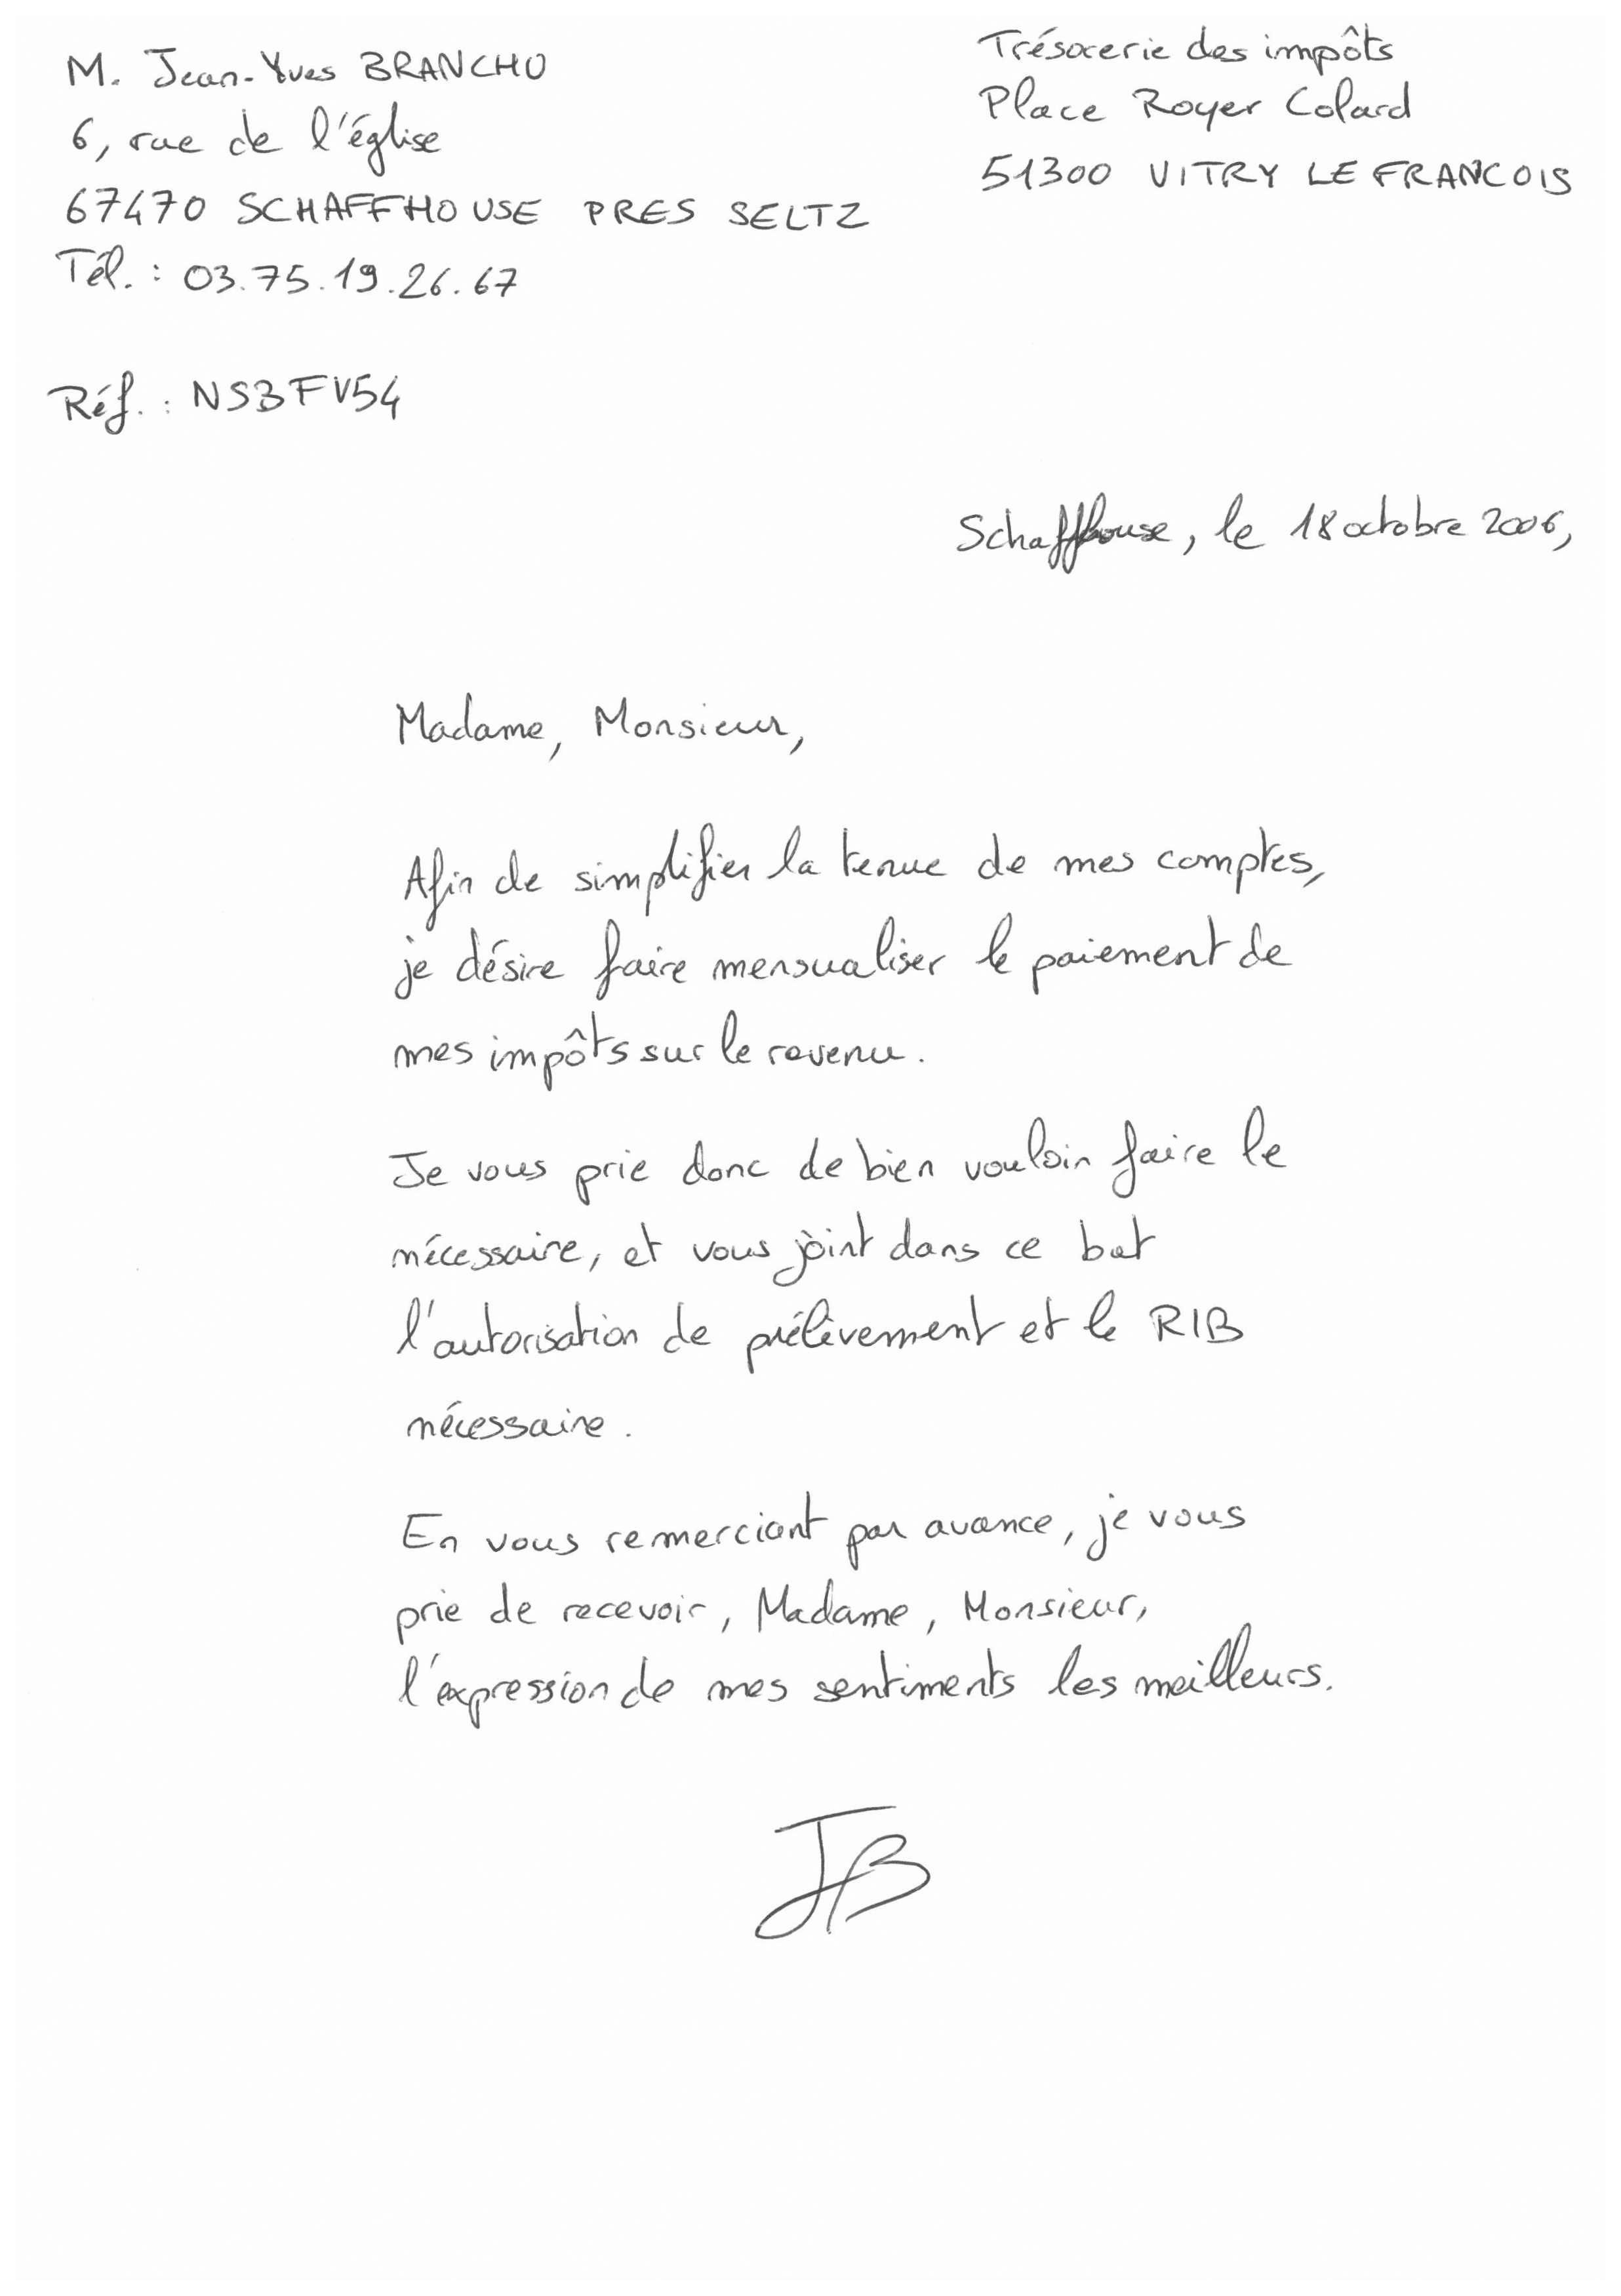 M. Jean-Yves BRANCHU
6, rue de l'église
67470 SCHAFFHOUSE PRES SELTZ
Tél. : 03.75.19.26.67
Trésorerie des impôts
Place Royer Colard
51300 VITRY LE FRANCOIS
Réf. : NSBFV54
Schaffhouse, le 18 octobre 2006,
Madame, Monsieur,
Afin de simplifier la tenue de mes comptes,
je désire faire mensualiser le paiement de
mes impôts sur le revenu.
Je vous prie donc de bien vouloir faire le
nécessaire, et vous joint dans ce but
l'autorisation de prélèvement et le RIB
nécessaire.
En vous remerciant par avance, je vous
prie de recevoir, Madame, Monsieur,
l'expression de mes sentiments les meilleurs.
JB